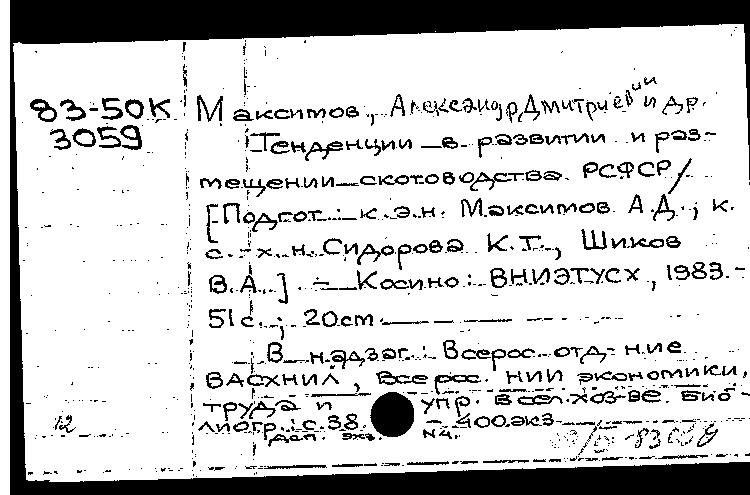 83-50К
3059
Максимов, Александр Дмитриевич и др.
Тенденции в развитии и раз-
мещении скотоводства РСФСР /
[Подгот.: к.э.н. Максимов А.Д., к.
с.-х.н. Сидорова К.Т., Шиков
В.А.]. - Косино: ВНИЭТУСХ, 1983. -
51с.; 20см.
В надзаг.: Всерос. отд-ние
ВАСХНИЛ, Всерос. НИИ экономики,
труда и упр. в сел. хоз-ве. Биб-
лиогр.: с. 38. - 400 экз.
Деп. экз. №4.
12